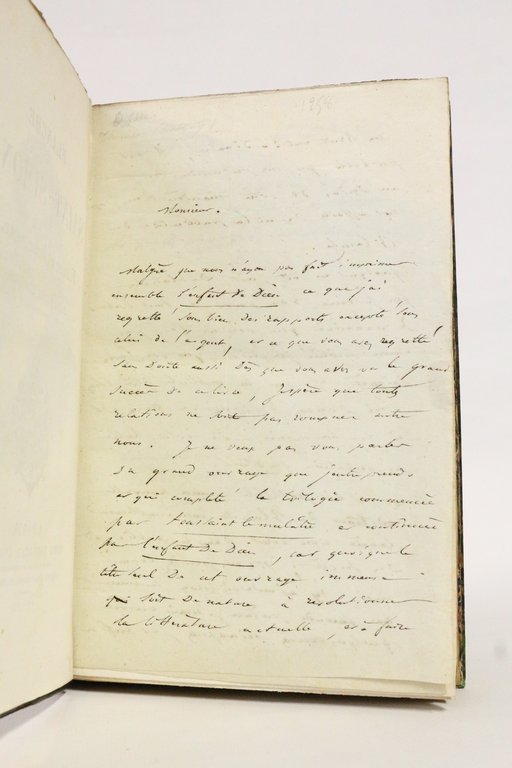 1958
Monsieur.
Malgré que nous n'ayons pas fait imprimer
ensemble l'enfant de Dieu ce que j'ai
regretté sous bien des rapports excepté sous
celui de l'argent, et ce que vous avez regretté
sans doute aussi dès que vous avez vu le grand
succès de ce livre, j'espère que toutes
relations ne sont pas rompues entre
nous. Je ne veux pas vous parler
du grand ouvrage que j'entreprends
et qui complète la trilogie commencée
par toussaint le mulâtre et continuée
par l'enfant de Dieu, car quoique le
titre seul de cet ouvrage immense
qui soit de nature à révolutionner
la littérature actuelle, et à faire